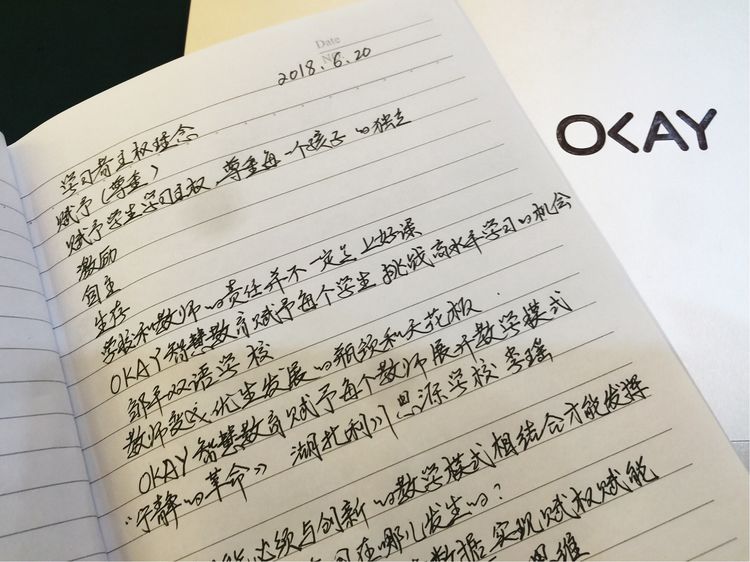 Date
No.
2018.6.20
OKAY
学习者主权理念
赋予(尊重)
赋予学生学习主权,尊重每一个孩子的独立
激励
自主
生存
学校和教师的责任并不一定是上好课
OKAY智慧教育赋予每个学生挑战高水平学习的机会
邹平双语学校
教师变成优生发展的瓶颈和天花板.
OKAY智慧教育赋予每个教师展开教学模式
"宁静的革命》 湖北利川思源学校 李瑶
必须与创新的教学模式相结合才能发挥
在哪儿发生的?
数据实现赋权赋能
思维